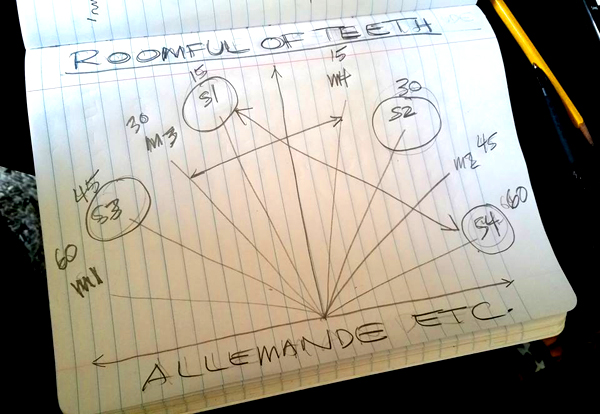 ROOMFUL OF TEETH
15
15
S1
M4
30
30
S2
M3
45
M2 45
S3
60
S4
60
M1
ALLEMANDE ETC.